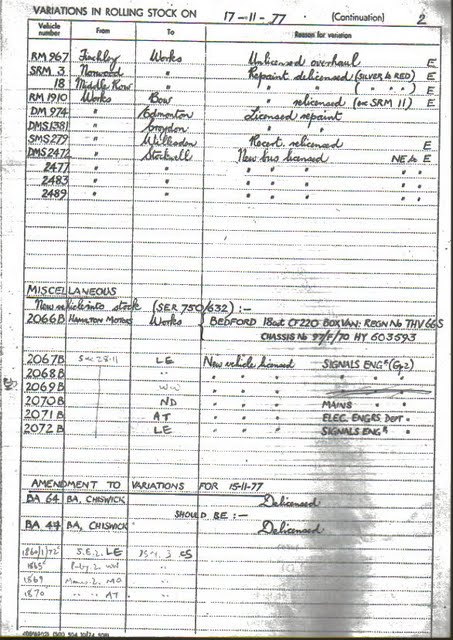 VARIATIONS IN ROLLING STOCK ON 17-11-77 (Continuation) 2
Vehicle number From To Reason for variation
RM 967 Finchley Works Unlicensed overhaul E
SRM 3 Norwood " Repaint delicensed (SILVER & RED) E
18 Middle Row " " " ( " " ) E
RM 1910 Works Bow " relicensed (ex SRM 11) E
DM 974 " Edmonton Licensed repaint
DMS1381 " Croydon " "
SMS279 " Willesden Recert. relicensed E
DMS2472 " Stockwell New bus licensed NEW E
2477 " " " " " " "
2483 " " " " " " "
2489 " " " " " " "
MISCELLANEOUS
New vehicle into stock (SER 750/632) :-
2066B HAMILTON MOTORS Works { BEDFORD 18cwt CF220 BOX VAN: REGN No THV 66S
CHASSIS No 97/F/70 HY 603593
2067B LE New vehicle licensed SIGNALS ENGR (Gp2)
2068B " " " " " "
2069B WW " " "
2070B ND " " " MAINS "
2071B AT " " " ELEC. ENGRS DEPT "
2072B LE " " " SIGNALS ENGR "
AMENDMENT TO VARIATIONS FOR 15-11-77
BA 64 BA, CHISWICK Delicensed
SHOULD BE :-
BA 44 BA, CHISWICK Delicensed
S.E.2. LE
1869
1870 " " AT "